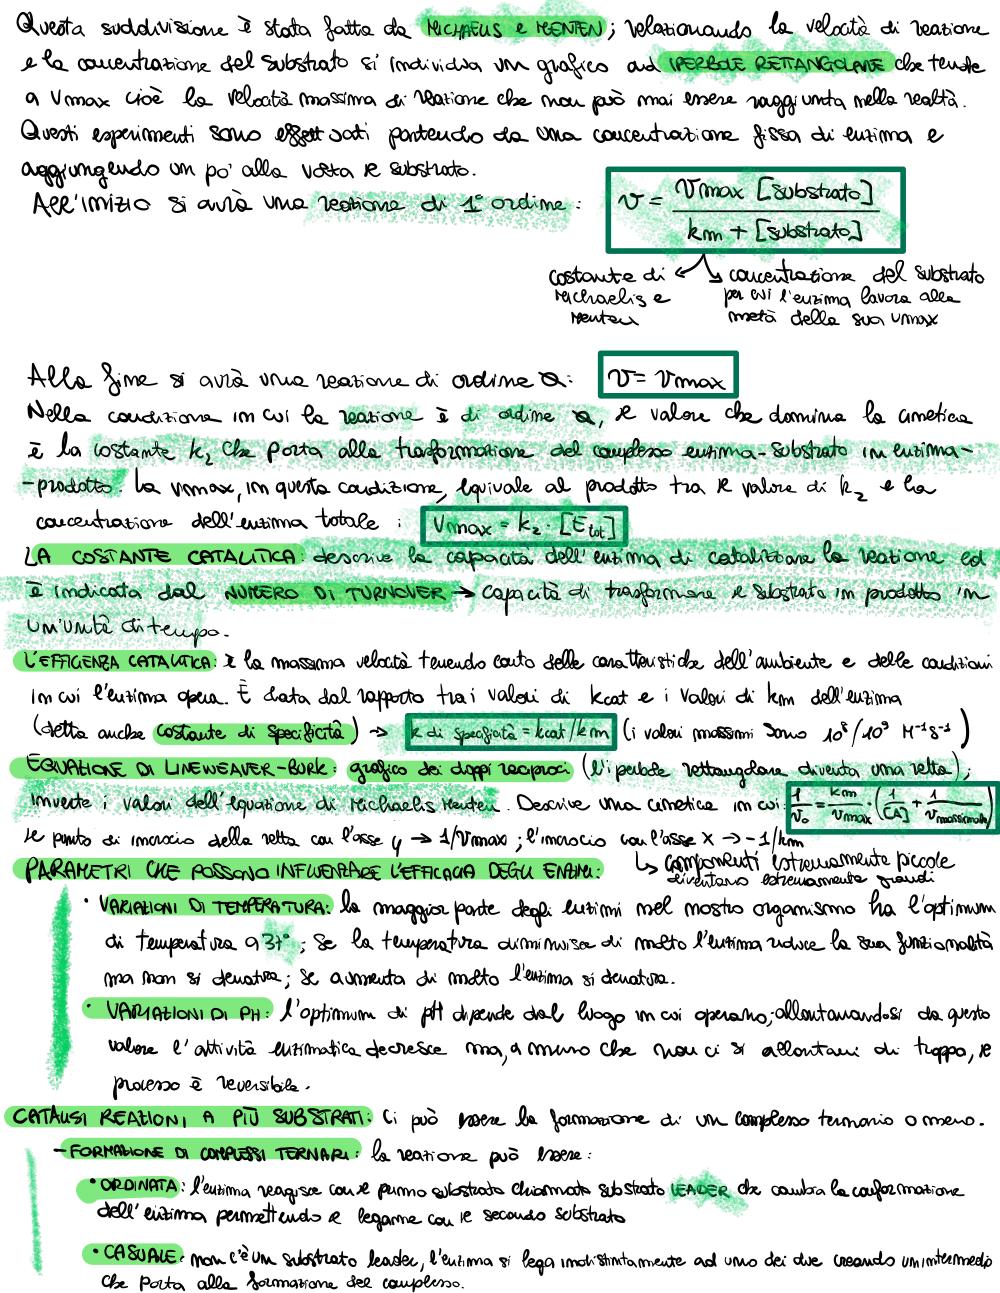 Questa suddivisione è stata fatta da MICHAELIS e MENTEN; relazionando la velocità di reazione
e la concentrazione del substrato si individua un grafico ad IPERBOLE RETTANGOLARE che tende
a Vmax cioè la velocità massima di reazione che non può mai essere raggiunta nella realtà.
Questi esperimenti sono effettuati partendo da una concentrazione fissa di enzima e
aggiungendo un po' alla volta il substrato.
All'inizio si avrà una reazione di 1° ordine: v = Vmax [substrato] / km + [substrato]
costante di Michaelis e Menten
concentrazione del substrato per cui l'enzima lavora alla metà della sua vmax
Alla fine si avrà una reazione di ordine 0: v = vmax
Nella condizione in cui la reazione è di ordine 0, il valore che domina la cinetica
è la costante k₂ che porta alla trasformazione del complesso enzima-substrato in enzima-
-prodotto. La vmax, in questa condizione, equivale al prodotto tra il valore di k₂ e la
concentrazione dell'enzima totale : Vmax = k₂ · [Etot]
LA COSTANTE CATALITICA: descrive la capacità dell'enzima di catalizzare la reazione ed
è indicata dal NUMERO DI TURNOVER → capacità di trasformare il substrato in prodotto in
un'unità di tempo.
L'EFFICENZA CATALITICA: è la massima velocità tenendo conto delle caratteristiche dell'ambiente e delle condizioni
in cui l'enzima opera. È data dal rapporto tra i valori di kcat e i valori di km dell'enzima
(detta anche costante di specificità) → k di specificità = kcat/km (i valori massimi sono 10⁸/10⁹ M⁻¹s⁻¹)
EQUAZIONE DI LINEWEAVER-BURK: grafico dei doppi reciproci (l'iperbole rettangolare diventa una retta);
inverte i valori dell'equazione di Michaelis Menten. Descrive una cinetica in cui: 1/v₀ = km/vmax · (1/[A] + 1/vmassimale)
il punto di incrocio della retta con l'asse y → 1/Vmax ; l'incrocio con l'asse x → -1/km
↳ componenti estremamente piccole
diventano estremamente grandi
PARAMETRI CHE POSSONO INFLUENZARE L'EFFICACIA DEGLI ENZIMI:
• VARIAZIONI DI TEMPERATURA: la maggior parte degli enzimi nel nostro organismo ha l'optimum
di temperatura a 37°; se la temperatura diminuisce di molto l'enzima riduce la sua funzionalità
ma non si denatura; se aumenta di molto l'enzima si denatura.
• VARIAZIONI DI PH: l'optimum di pH dipende dal luogo in cui operano; allontanandosi da questo
valore l'attività enzimatica decresce ma, a meno che non ci si allontani di troppo, il
processo è reversibile.
CATALISI REAZIONI A PIÙ SUBSTRATI: ci può essere la formazione di un complesso ternario o meno.
- FORMAZIONE DI COMPLESSI TERNARI: la reazione può essere:
• ORDINATA: l'enzima reagisce con il primo substrato chiamato substrato LEADER che cambia la conformazione
dell'enzima permettendo il legame con il secondo substrato
• CASUALE: non c'è un substrato leader, l'enzima si lega indistintamente ad uno dei due creando un intermedio
che porta alla formazione del complesso.